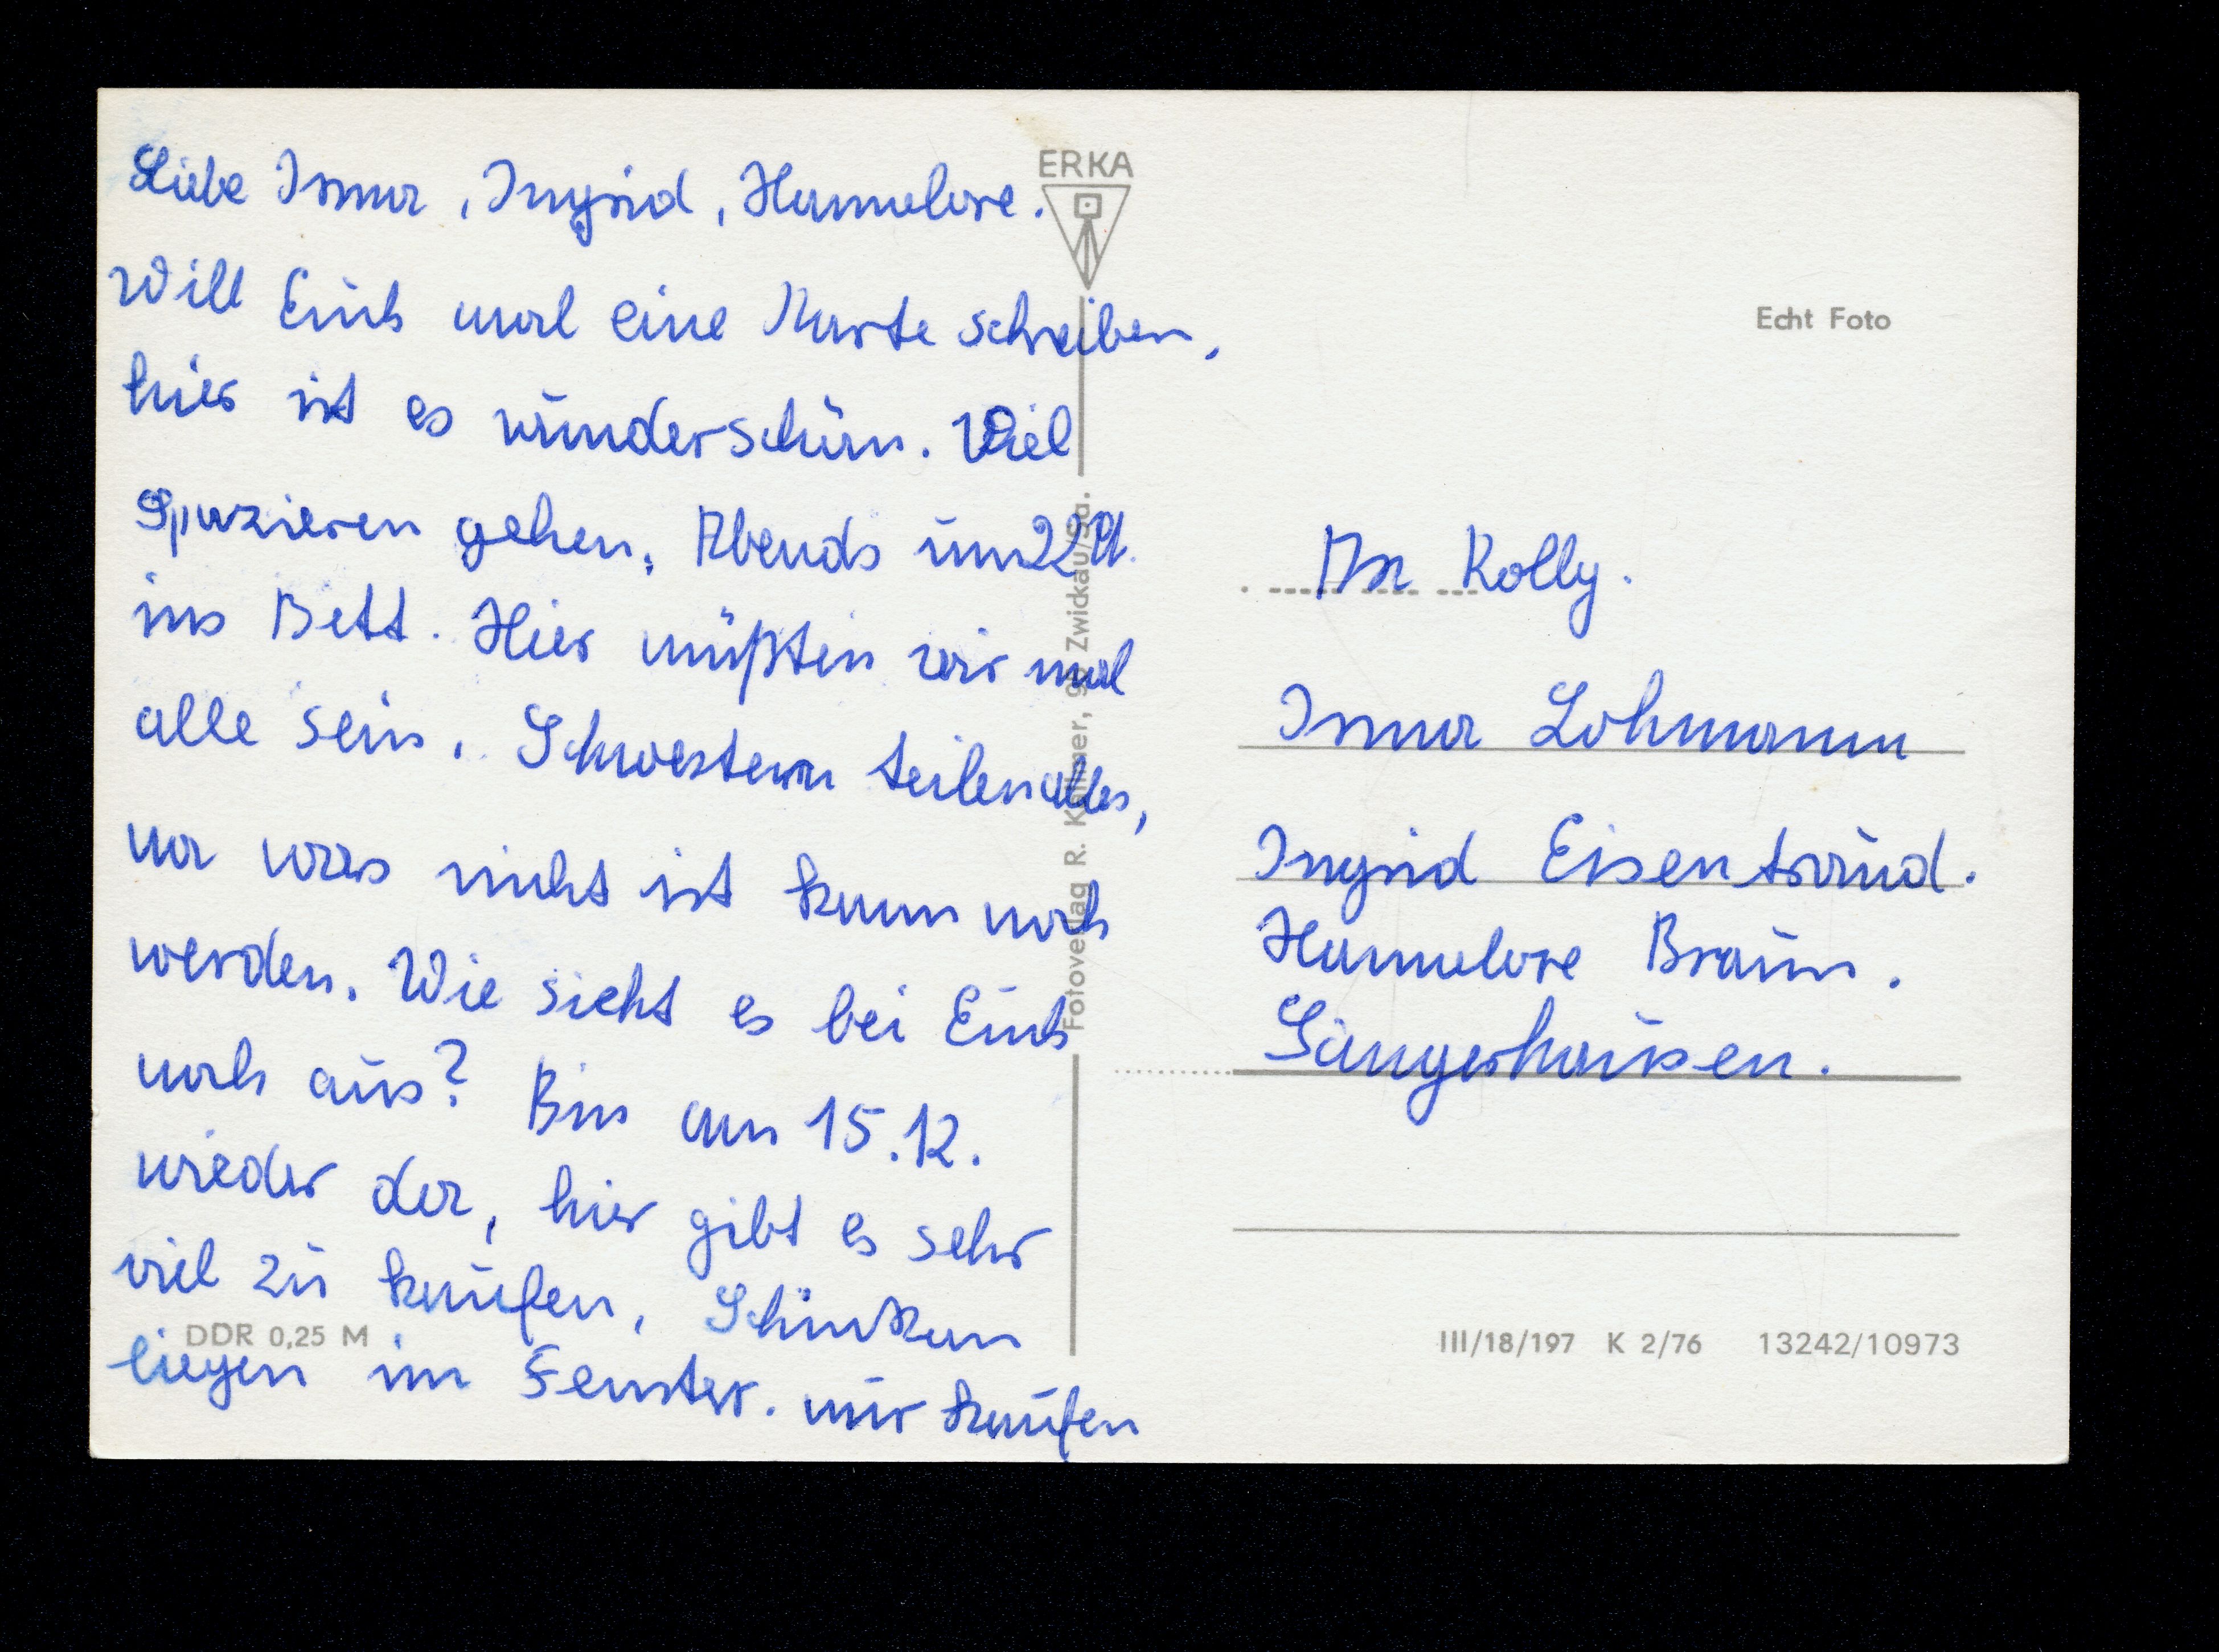 Liebe Irma, Ingrid, Hannelore.
Will Euch mal eine Karte schreiben,
hier ist es wunderschön. Viel
Spazieren gehen, Abends um 22 U.
ins Bett. Hier müßten wir mal
alle sein. Schwestern teilen alles,
na was nicht ist kann noch
werden. Wie sieht es bei Euch
noch aus? Bin am 15.12.
wieder da, hier gibt es sehr
viel zu kaufen, Schinken
liegen im Fenster. wir kaufen
DDR 0,25 M
ERKA
Fotoverlag R. Zwickau/Sa.
Echt Foto
An Kolly.
Irma Lohmann
Ingrid Eisentraud.
Hannelore Braun.
Sangerhausen.
III/18/197 K 2/76 13242/10973